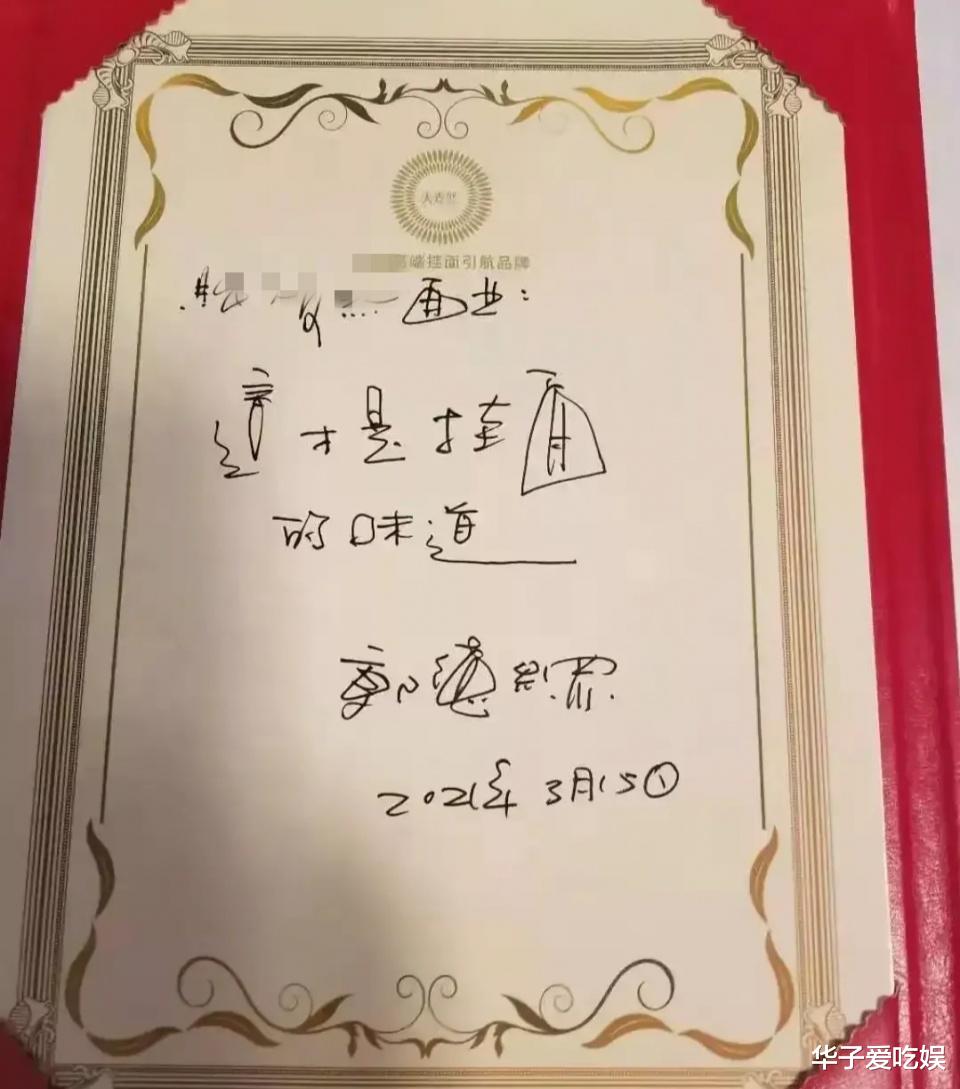 高端挂面引航品牌
面业：
這才是挂面
的味道
郭德綱
2021年3月15日
华子爱吃娱